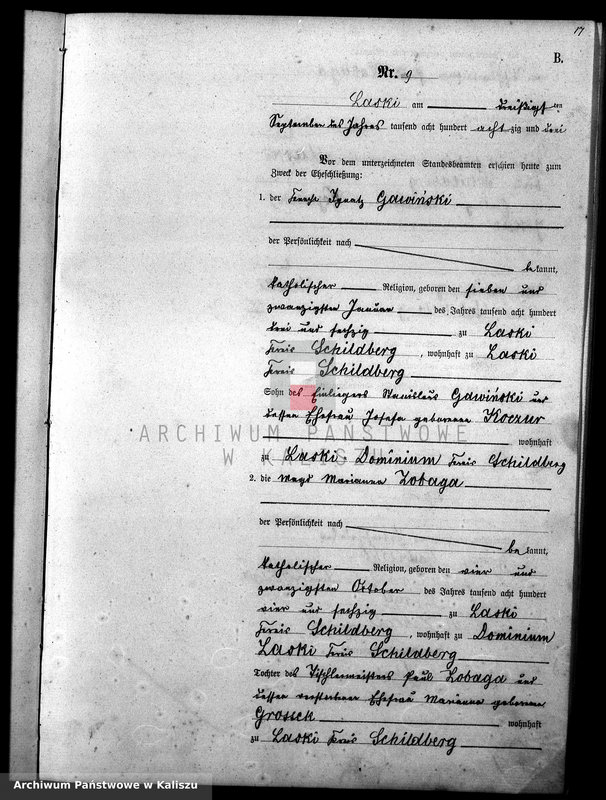 17
B.
Nr. 9
Laski am dreißigsten
September des Jahres tausend acht hundert achtzig und drei
Vor dem unterzeichneten Standesbeamten erschien heute zum
Zweck der Eheschließung:
1. der Knecht Ignatz Gawiński
der Persönlichkeit nach
bekannt,
katholischer Religion, geboren den sieben und
zwanzigsten Januar des Jahres tausend acht hundert
drei und sechzig zu Laski
Kreis Schildberg, wohnhaft zu Laski
Kreis Schildberg
Sohn des Einliegers Stanislaus Gawiński und
dessen Ehefrau Josefa geborenen Koczur
wohnhaft
ARCHIWUM PAŃSTWOWE
W KALISZU
zu Laski-Dominium Kreis Schildberg
2. die Magd Marianna Zobaga
der Persönlichkeit nach
bekannt,
katholischer Religion, geboren den vier und
zwanzigsten October des Jahres tausend acht hundert
vier und sechzig zu Laski
Kreis Schildberg, wohnhaft zu Dominium
Laski Kreis Schildberg
Tochter des Tischlermeisters Paul Zobaga und
dessen verstorbenen Ehefrau Marianna geborenen
wohnhaft
zu Laski Kreis Schildberg
Archiwum Państwowe w Kaliszu